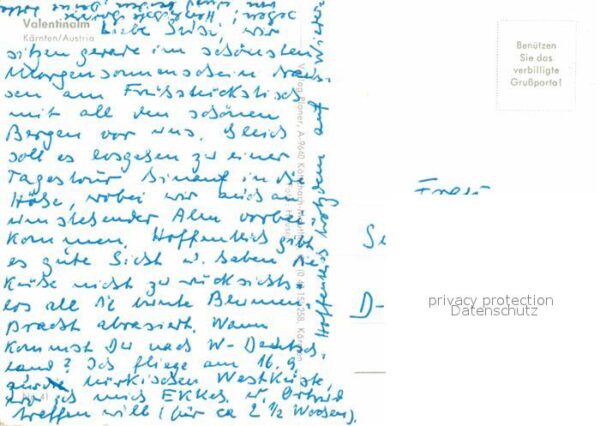 Valentinalm
Kärnten/Austria
Liebe Susi, wir
sitzen gerade im schönsten
Morgensonnenschein draus-
sen am Frühstückstisch
mit all den schönen
Bergen vor uns. Gleich
soll es losgehen zu einer
Tagestour hinauf in die
Höhe, wobei wir auch an
umstehender Alm vorbei-
kommen. Hoffentlich gibt
es gute Sicht u. haben die
Kühe nicht zu rücksichts-
los all die bunte Blumen
Pracht abrasiert. Wann
kommst Du nach W-Deutsch-
land? Ich fliege am 16.9.
zur türkischen Westküste,
wo ich mich u.
treffen will (für ca 2 1/2 Wochen).
Hoffentlich trotzdem auf
Benützen
Sie das
verbilligte
Grußporto!
Frau
D-
privacy protection
Datenschutz